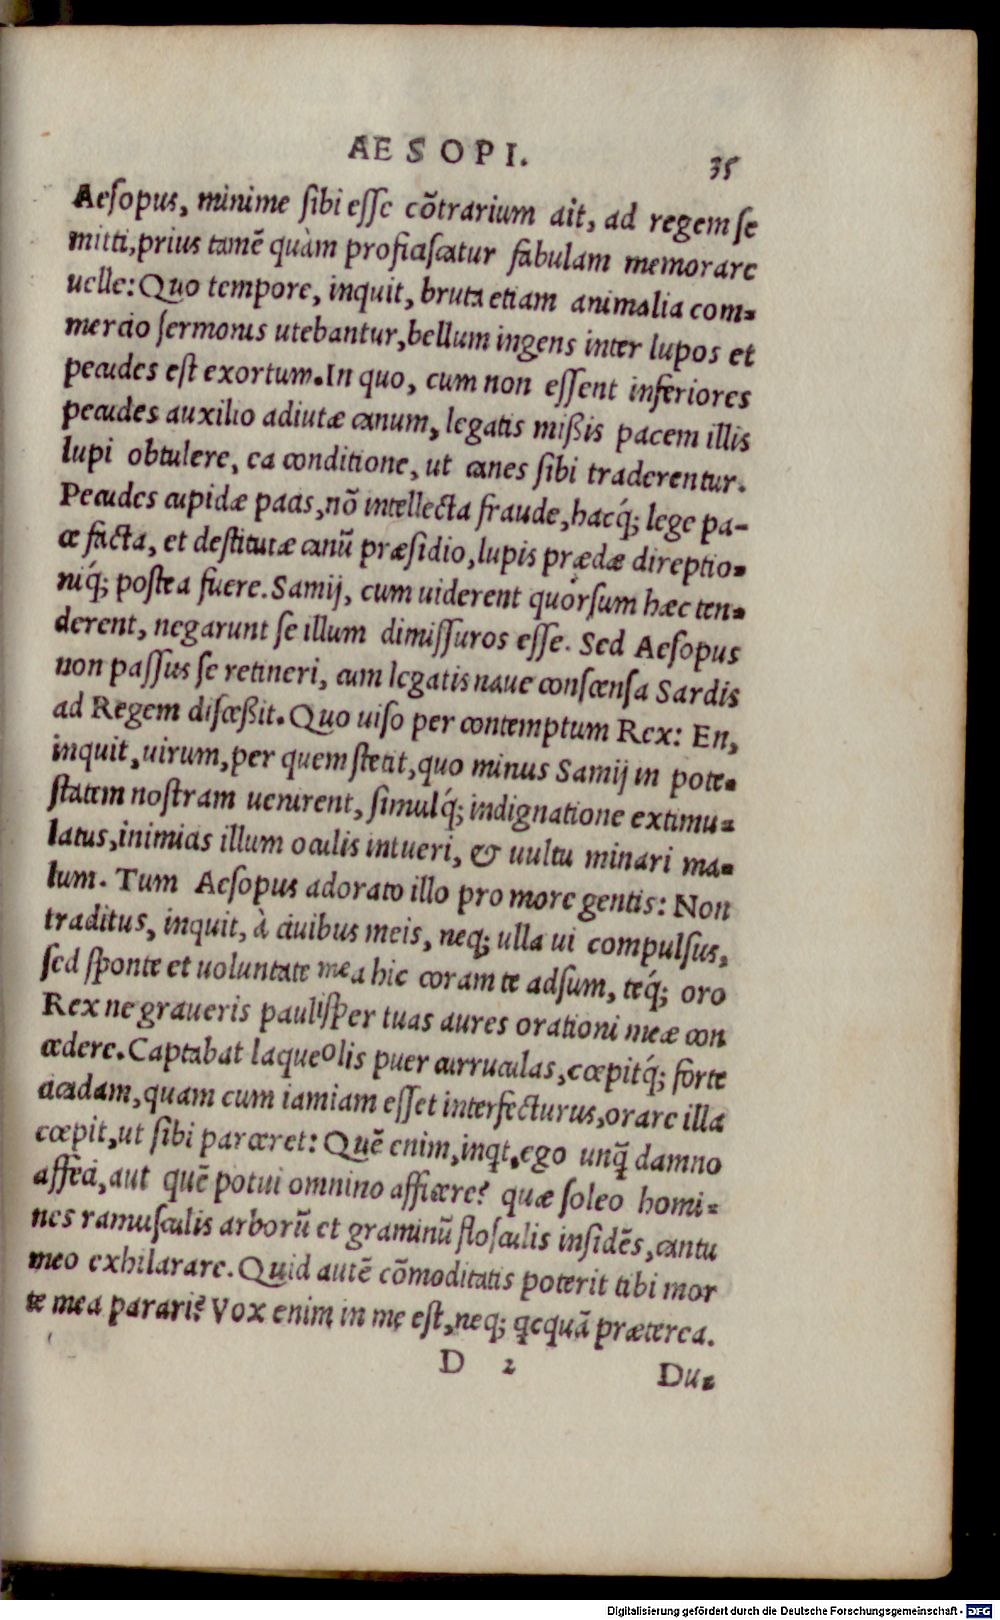 AESOPI. 35
Aesopus, minime sibi esse cõtrarium ait, ad regem se
mitti, prius tamẽ quàm proficiscatur fabulam memorare
uelle: Quo tempore, inquit, bruta etiam animalia com-
mercio sermonis utebantur, bellum ingens inter lupos et
pecudes est exortum. In quo, cum non essent inferiores
pecudes auxilio adiutæ canum, legatis mißis pacem illis
lupi obtulere, ea conditione, ut canes sibi traderentur.
Pecudes cupidæ pacis, nõ intellecta fraude, hacq́; lege pa-
ce facta, et destitutæ canũ præsidio, lupis prædæ direptio-
niq́; postea fuere. Samij, cum uiderent quorsum hæc ten-
derent, negarunt se illum dimissuros esse. Sed Aesopus
non passus se retineri, cum legatis naue conscensa Sardis
ad Regem discessit. Quo uiso per contemptum Rex: En,
inquit, uirum, per quem stetit, quo minus Samij in pote-
statem nostram uenirent, simulq́; indignatione extimu-
latus, inimicis illum oculis intueri, & uultu minari ma-
lum. Tum Aesopus adorato illo pro more gentis: Non
traditus, inquit, à ciuibus meis, neq; ulla ui compulsus,
sed sponte et uoluntate mea hic coram te adsum, teq́; oro
Rex ne graueris paulisper tuas aures orationi meæ con
cedere. Captabat laqueolis puer curruculas, cœpitq́; forte
cicadam, quam cum iamiam esset interfecturus, orare illa
cœpit, ut sibi parceret: Quẽ enim, inqt, ego unq̃ damno
affeci, aut quẽ potui omnino afficere? quæ soleo homi-
nes ramusculis arborũ et graminũ flosculis insidẽs, cantu
meo exhilarare. Quid autẽ cõmoditatis poterit tibi mor
te mea parari? Vox enim in me est, neq; qcquã præterea.
D 2 Du-
Digitalisierung gefördert durch die Deutsche Forschungsgemeinschaft - DFG